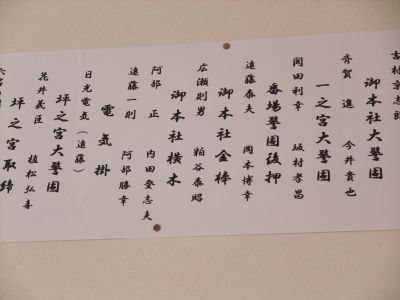 御本社大警固
斉賀 進 今井貴也
一之宮大警固
岡田利幸 坂村孝昌
番場警固後押
遠藤泰夫 岡本博幸
御本社金棒
広瀬則男 粕谷泰昭
御本社横木
阿部 正 内田登志夫
遠藤一則 阿部勝幸
電気掛
日光電気(遠藤)
坪之宮大警固
花井義臣 植松弘喜
坪之宮取締